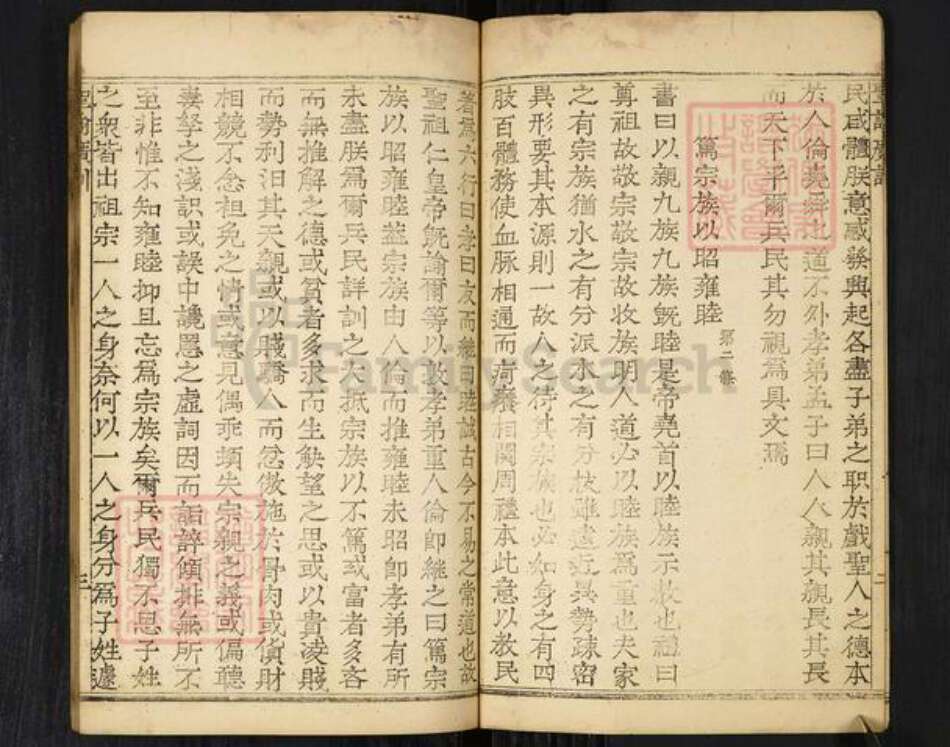 民咸體朕意感發興起各盡子弟之職於戲聖人之德本
於人倫堯舜之道不外孝弟孟子曰人人親其親長其長
而天下平爾兵民其勿視爲具文焉
篤宗族以昭雍睦 第二條
書曰以親九族九族旣睦是帝堯首以睦族示教也禮曰
尊祖故敬宗敬宗故收族明人道必以睦族爲重也夫家
之有宗族猶水之有分派木之有分枝雖遠近異勢疎密
異形要其本源則一故人之待其宗族也必如身之有四
肢百體務使血脉相通而疴癢相關周禮本此意以教民
著爲六行曰孝曰友而繼曰睦誠古今不易之常道也故
聖祖仁皇帝旣諭爾等以敦孝弟重人倫卽繼之曰篤宗
族以昭雍睦葢宗族由人倫而推雍睦未昭卽孝弟有所
未盡朕爲爾兵民詳訓之大抵宗族以不篤或富者多吝
而無推解之德或貧者多求而生觖望之思或以貴凌賤
而勢利汨其天親或以賤驕人而忿傲施於骨肉或貨財
相競不念袒免之情或意見偶乖頓失宗親之義或偏聽
妻孥之淺識或誤中讒慝之虛詞因而詬誶傾排無所不
至非惟不知雍睦抑且忘爲宗族矣爾兵民獨不思子姓
之衆皆出祖宗一人之身奈何以一人之身分爲子姓遽
聖諭廣訓
三
FamilySearch